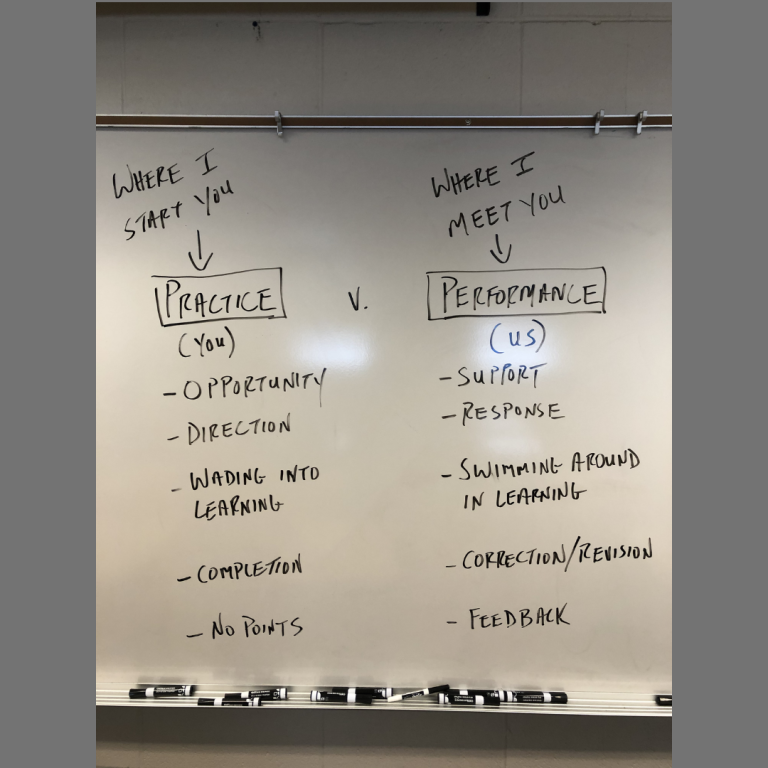 WHERE I
START YOU
PRACTICE
(YOU)
- OPPORTUNITY
- DIRECTION
- WADING INTO
LEARNING
- COMPLETION
- NO POINTS
V.
WHERE I
MEET YOU
PERFORMANCE
(US)
- SUPPORT
- RESPONSE
- SWIMMING AROUND
IN LEARNING
- CORRECTION/REVISION
- FEEDBACK